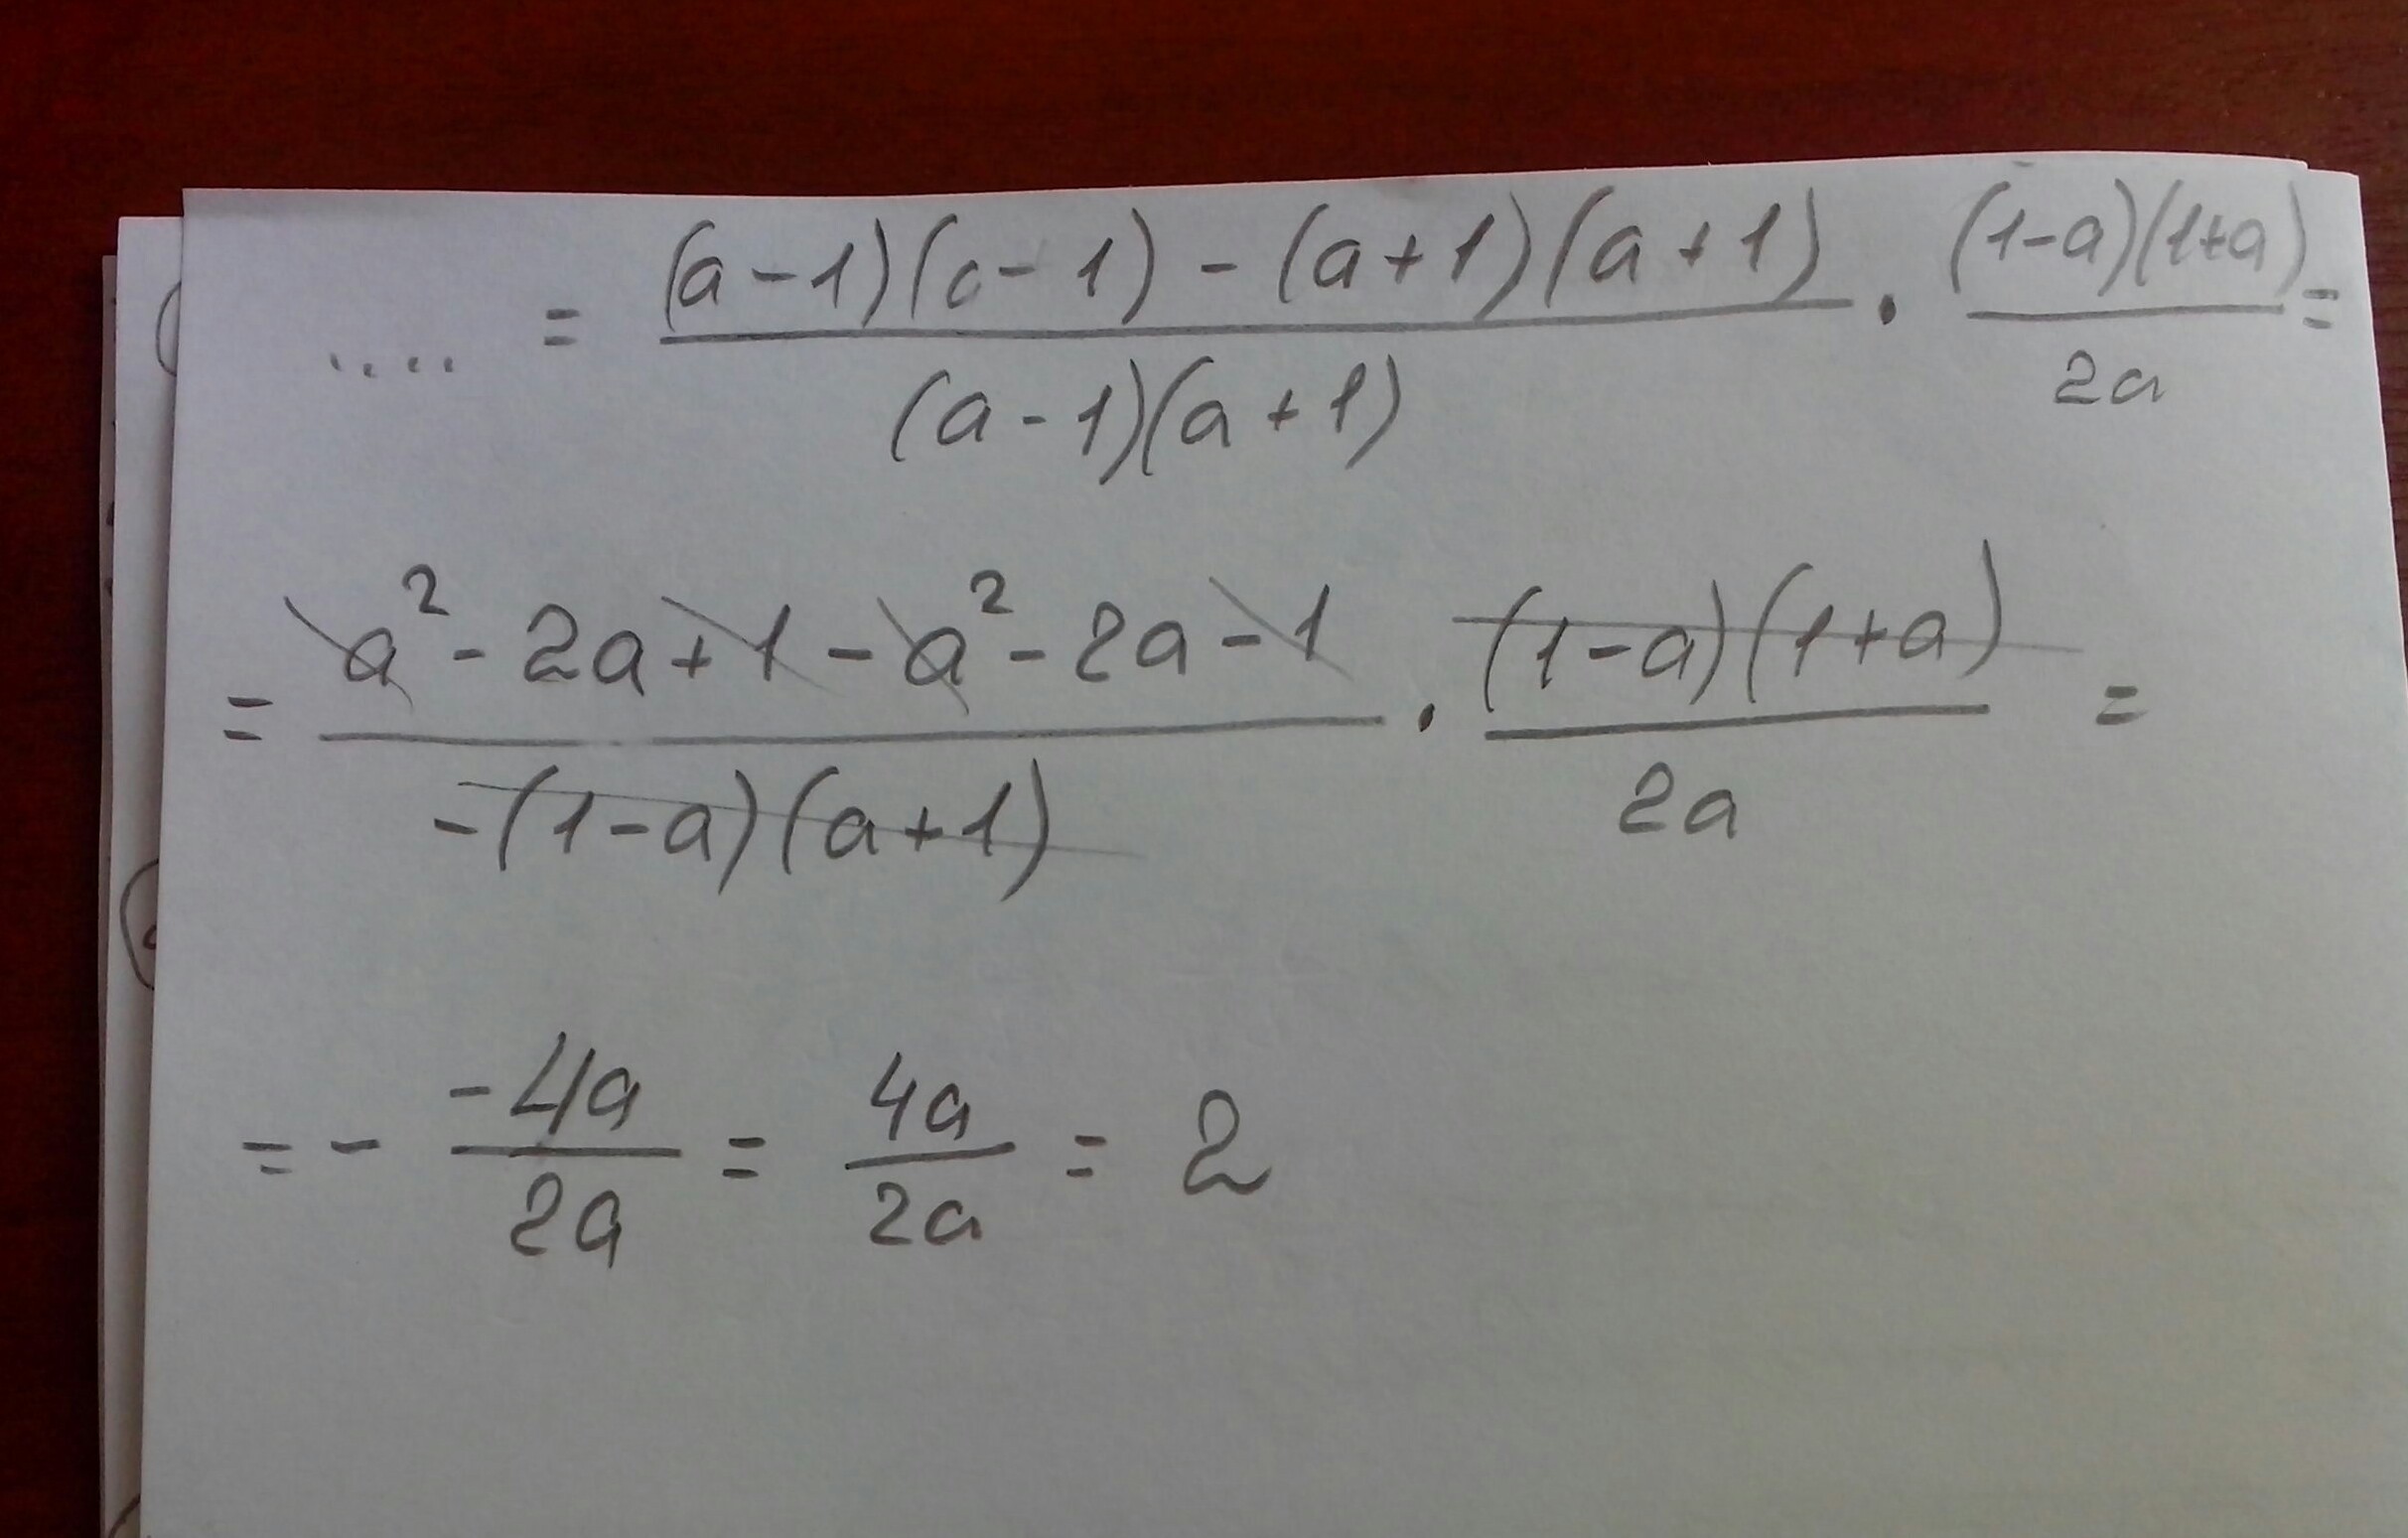 .... = \frac{(a-1)(c-1)-(a+1)(a+1)}{(a-1)(a+1)} \cdot \frac{(1-a)(1+a)}{2a} =
= \frac{a^2-2a+1-a^2-2a-1}{-(1-a)(a+1)} \cdot \frac{(1-a)(1+a)}{2a} =
= - \frac{-4a}{2a} = \frac{4a}{2a} = 2